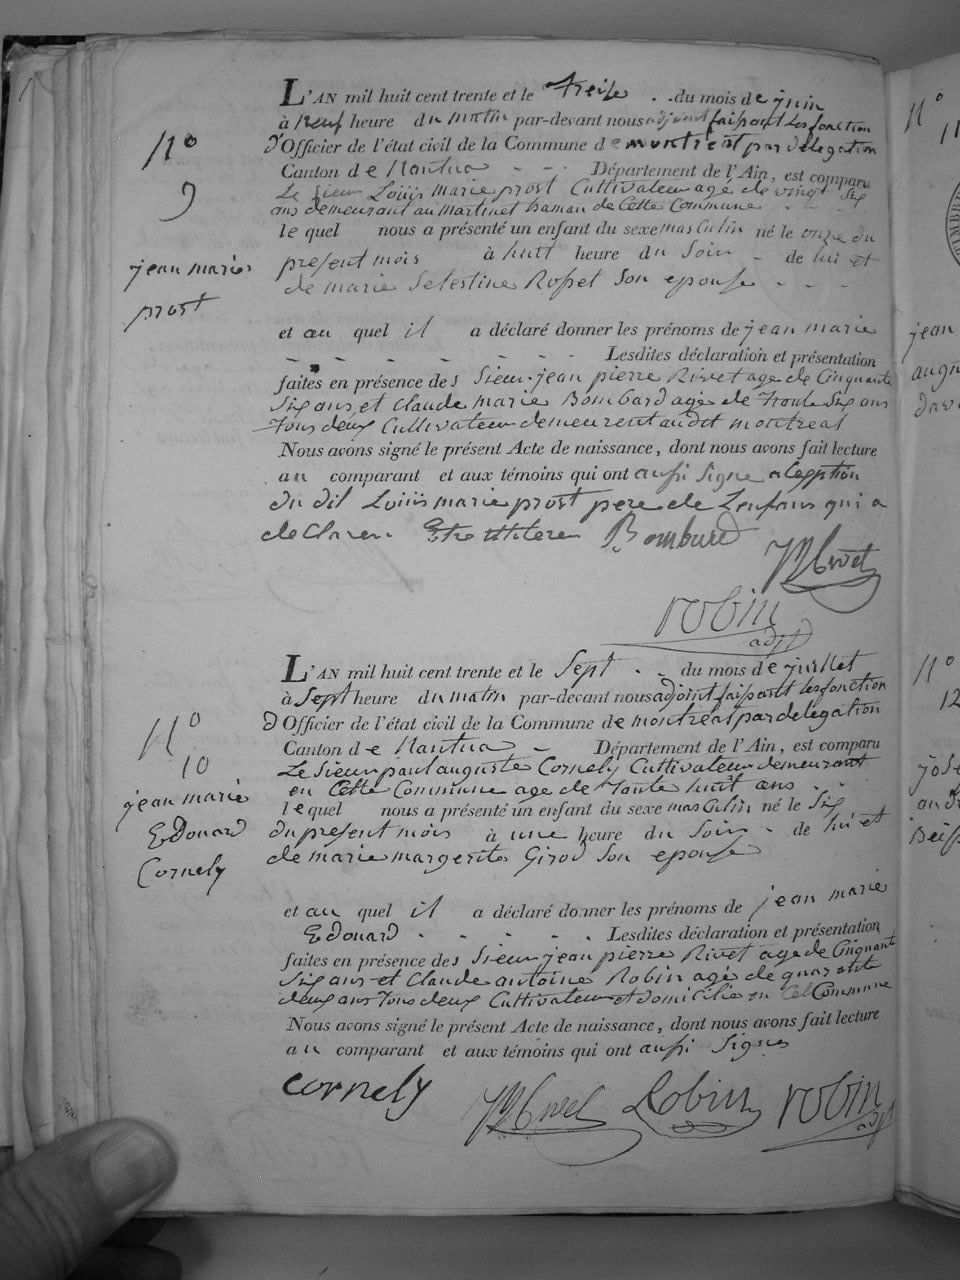 L'AN mil huit cent trente et le treise . . du mois de juin
à neuf heure du matin par-devant nous adjoint faisant les fonction
d'Officier de l'état civil de la Commune de montreal par délégation
Canton de Nantua - - Département de l'Ain, est comparu
Le Sieur Louiis marie prost Cultivateur agé de vingt Six
ans demeurant au martinet de Cette Commune
le quel nous a présenté un enfant du sexe masculin né le onze du
N° 9
jean marie
prost
present mois à huit heure du Soir - de lui et
de marie Selestine Rosset Son epouse - - -
et au quel il a déclaré donner les prénoms de jean marie
- - - - - - - Lesdites déclaration et présentation
faites en présence des Sieur jean pierre Rivet age de Cinquante
Six ans et Claude marie Bombard agé de trente Six ans
Tous deux Cultivateur demeurent audit montreal
Nous avons signé le présent Acte de naissance, dont nous avons fait lecture
au comparant et aux témoins qui ont aussi Signe a lexption
du dit Louiis marie prost pere de Lenfans qui a
declarer Etre Bombard JPRivet
robin
adjt
L'AN mil huit cent trente et le Sept - - du mois de juillet
à Sept heure du matin par-devant nous adjoint faisant les fonction
d Officier de l'état civil de la Commune de montreal par delegation
Canton de Nantua - Département de l'Ain, est comparu
Le Sieur paul auguste Cornely Cultivateur demeurant
en Cette Commune age de Trente huit ans - -
lequel nous a présenté un enfant du sexe masculin né le Six
N° 10
jean marie
Edouard
Cornely
du present mois à une heure du Soir - de lui et
de marie margerite Girod Son epouse
et au quel il a déclaré donner les prénoms de jean marie
Edouard - - - - - Lesdites déclaration et présentation
faites en présence des Sieur jean pierre Rivet age de Cinquante
Six ans et Claude antoine Robin agé de quarante
deux ans Tous deux Cultivateur et domicilié en Cet Commune
Nous avons signé le présent Acte de naissance, dont nous avons fait lecture
au comparant et aux témoins qui ont aussi Signes
cornely JPRivet Robin robin
adjt
N°
11
jean
N°
12